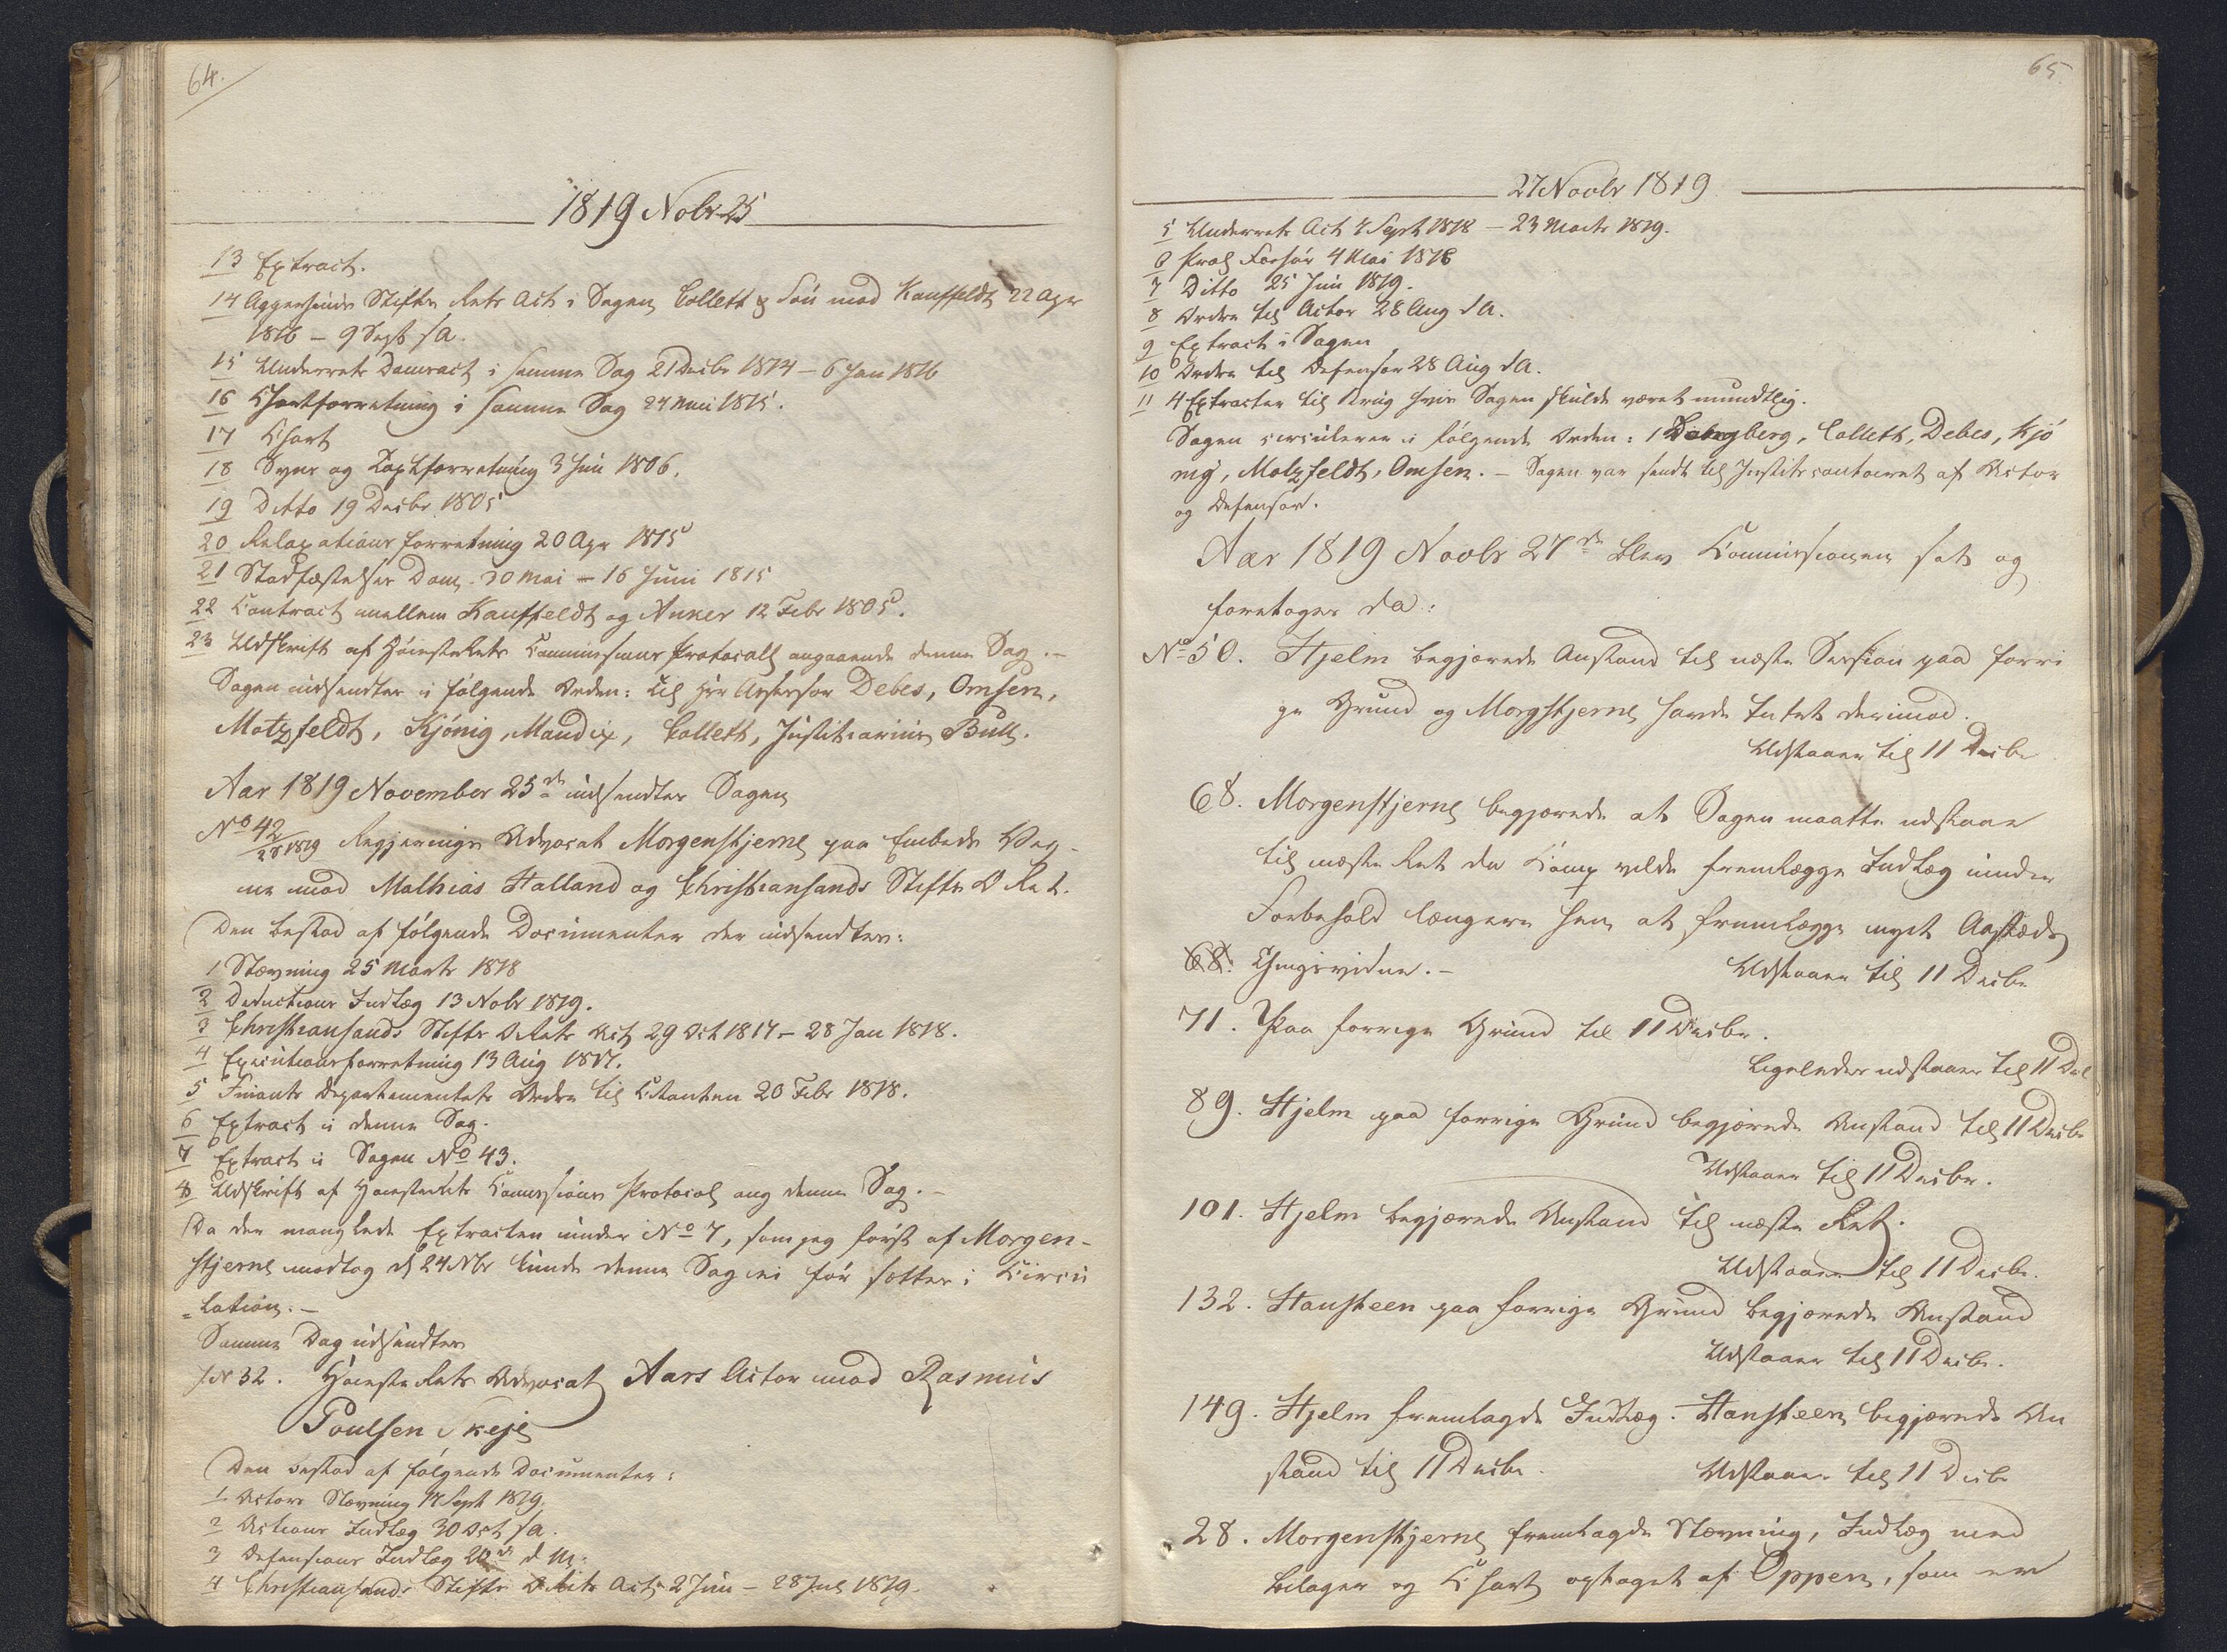 64.
1819 Nobr 25
13 Extract.
14 Aggershuus Stifts Rets Act i Sagen Collett & Søn mod Kauffeldt 22 Apr
1816 – 9 Sept s A.
15 Underrets Domsact i samme Sag 21 Decbr 1814 – 6 Jan 1816
16 Chartforretning i samme Sag 24 Mai 1815.
17 Chart
18 Syns og Taxtforretning 3 Jun 1806.
19 Ditto 19 Decbr 1805
20 Relaxations forretning 20 Apr 1815
21 Stadfæstelses Dom 30 Mai – 16 Juni 1815
22 Contract mellem Kauffeldt og Anker 12 Febr 1805.
23 Udskrift af HøiesteRets Commissions Protocoll angaaende denne Sag. –
Sagen udsendtes i følgende Orden: til Hrr Assessor Debes, Omsen,
Motzfeldt, Kjønig, Mandix, Collett, Justitiarius Bull.
Aar 1819 November 25de udsendtes Sagen
No 42/28 1819 Regjerings Advocat Morgenstjerne paa Embeds Veg-
ne mod Mathias Halland og Christiansands Stifts O Ret.
Den bestod af følgende Documenter der udsendtes:
1 Stævning 25 Marts 1818
2 Deductions Indlæg 13 Nobr 1819.
3 Christiansands Stifts O Rets Act 29 Oct 1817 – 28 Jan 1818.
4 Executionsforretning 13 Aug 1817.
5 Finants Departementets Ordre til Citanten 20 Febr 1818.
6 Extract i denne Sag.
7 Extract i Sagen No 43.
8 Udskrift af HøiesteRets Commissions Protocol ang denne Sag. –
Da der manglede Extracten under No 7, som jeg først af Morgen-
stjerne modtog d 24 Nbr kunde denne Sag ei før sættes i Circu
=lation. –
Samme Dag udsendtes
No 32. Høieste Rets Advocat Aars Actor mod Rasmus
Poulsen Skeje
Den bestod af følgende Documenter:
1 Actors Stævning 17 Sept 1819.
2 Actions Indlæg 30 Oct s A.
3 Defensions Indlæg 20de d M.
4 Christiansands Stifts O Rets Act 2 Juni – 28 Jul 1819.
65.
27 Novbr 1819
5 Underrets Act 4 Sept 1818 – 23 Marts 1819.
6 Præl Forhør 4 Mai 1818
7 Ditto 25 Jun 1819.
8 Ordre til Actor 28 Aug s A.
9 Extract i Sagen
10 Ordre til Defensor 28 Aug s A.
11 4 Extracter til Brug hvis Sagen skulde været mundtlig.
Sagen circulerer i følgende Orden: berg, Collett, Debes, Kjø
nig, Motzfeldt, Omsen. – Sagen var sendt til Justitscontoiret af Actor
og Defensor.
Aar 1819 Novbr 27de blev Commissionen sat og
foretoges da:
No 50. Hjelm begjerede Anstand til næste Session paa forri
ge Grund og Morgstjerne havde Intet derimod.
Udstaaer til 11 Decbr
68. Morgenstjerne begjerede at Sagen maatte udstaae
til næste Ret da Comp vilde fremlægge Indlæg under
Forbehold længere hen at fremlægge nyt Aastæds
68. Thingsvidne. –
Udstaaer til 11 Decbr
71. Paa forrige Grund til 11 Decbr.
Ligeledes udstaaer til 11 Dec
89. Hjelm paa forrige Grund begjerede Anstand til 11 Decbr
Udstaaer til 11 Decbr.
101. Hjelm begjerede Anstand til næste Ret.
Udstaaer til 11 Decbr.
132. Hansteen paa forrige Grund begjerede Anstand
Udstaaer til 11 Decbr.
149. Hjelm fremlagde Indlæg. Hansteen begjerede An
stand til 11 Decbr.
Udstaaer til 11 Decbr
28. Morgenstjerne fremlagde Stævning, Indlæg med
Bilager og Chart optaget af Oppen, som er